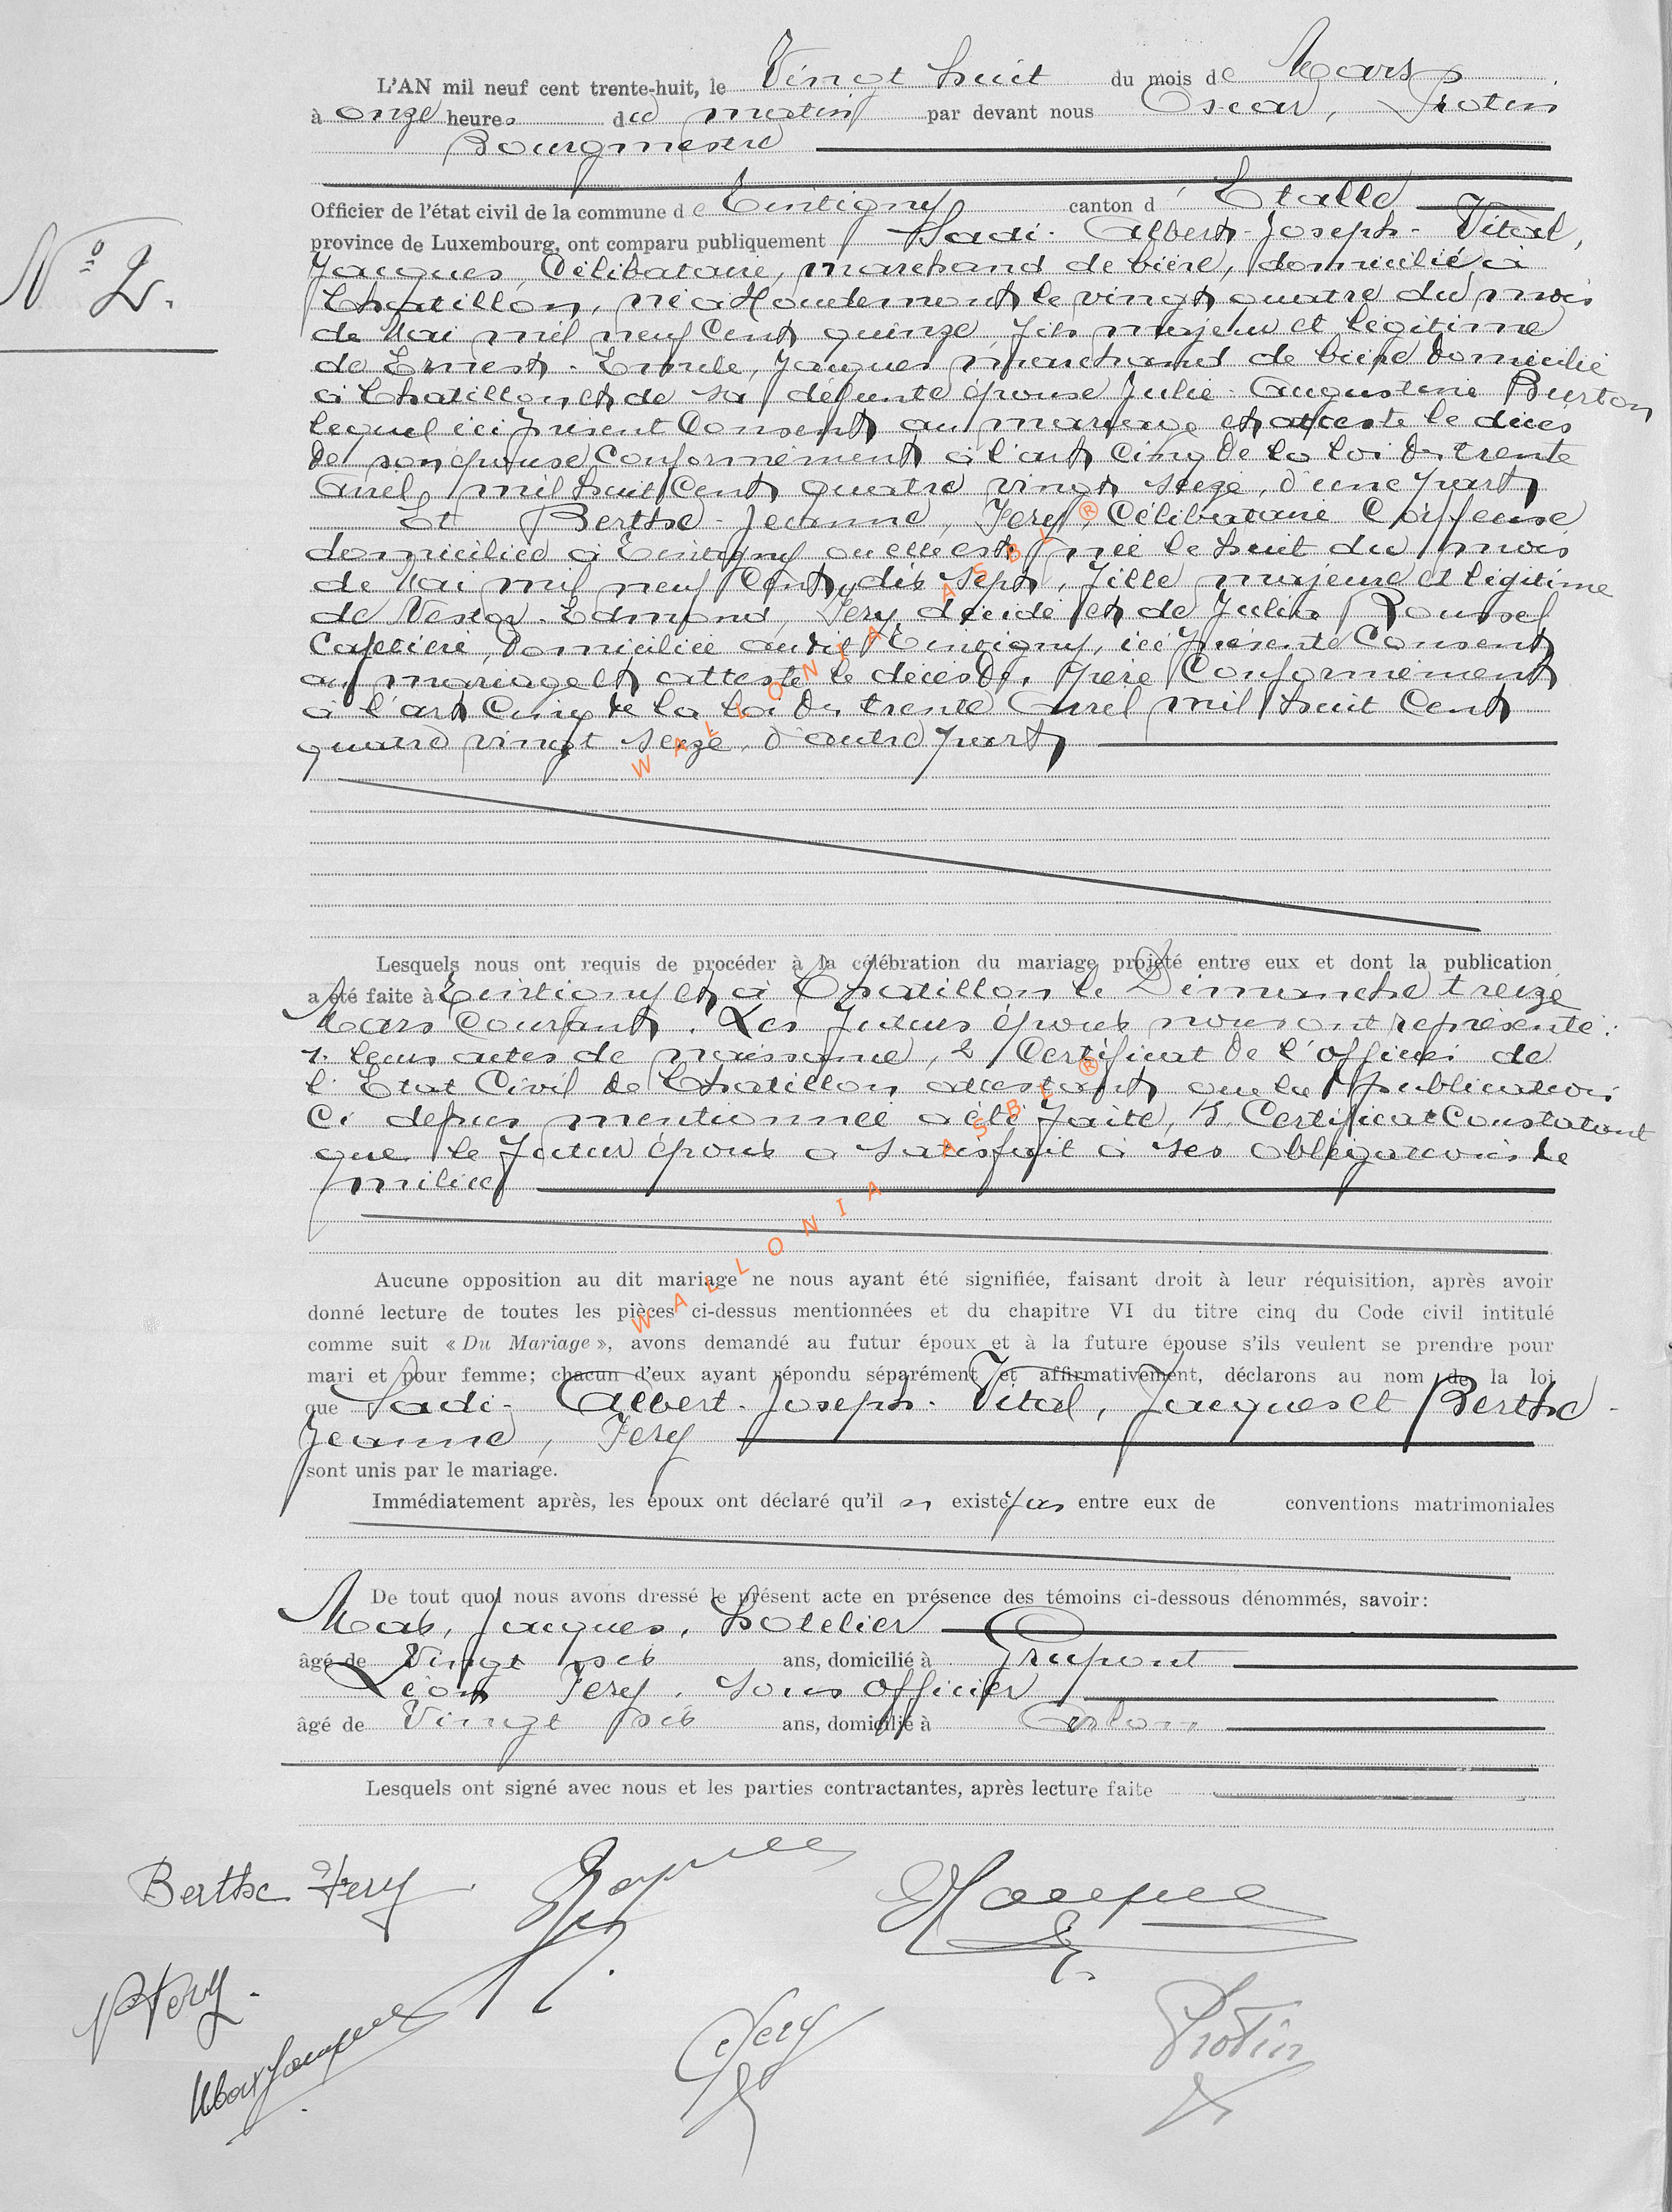 L'AN mil neuf cent trente-huit, le Vingt huit du mois de Mars
à onze heures du matin par devant nous Oscar, Protin
Bourgmestre
Officier de l'état civil de la commune de Tintigny canton d'Etalle
N° 2.
province de Luxembourg, ont comparu publiquement Sadi-Albert-Joseph-Vital,
Jacques, Célibataire, marchand de bière, domicilié à
Chatillon, né à Houdemont le vingt quatre du mois
de Mai mil neuf Cent quinze, fils majeur et légitime
de Ernest-Emile, Jacques marchand de bière domicilié
à Chatillon et de sa défunte épouse Julie-Augustine Burton
lequel ici présent Consent au mariage et atteste le décès
de son épouse Conformément à l'art Cinq de la loi du trente
Avril mil huit Cent quatre vingt seize, d'une part
Et Berthe-Jeanne, Fery, Célibataire Coiffeuse
domiciliée à Tintigny où elle est née le huit du mois
de Mai mil neuf Cent dix sept, fille majeure et légitime
de Nestor-Edmond, Fery décédé et de Julia Roussel
Cafetière, domiciliée audit Tintigny, ici présente Consent
au mariage et atteste le décès du père Conformément
à l'art Cinq de la loi du trente Avril mil huit Cent
quatre vingt seize, d'autre part
WALLONIA ASBL ®
Lesquels nous ont requis de procéder à la célébration du mariage projeté entre eux et dont la publication
a été faite à Tintigny et à Chatillon le Dimanche treize
Mars Courant. Les futurs époux nous ont représenté :
1. leurs actes de naissance, 2 Certificat de l'officier de
l'Etat Civil de Chatillon attestant que la publication
Ci depus mentionnée a été faite, 3. Certificat Constatant
que le futur époux a satisfait à ses obligations de
milice
WALLONIA ASBL ®
Aucune opposition au dit mariage ne nous ayant été signifiée, faisant droit à leur réquisition, après avoir
donné lecture de toutes les pièces ci-dessus mentionnées et du chapitre VI du titre cinq du Code civil intitulé
comme suit « Du Mariage », avons demandé au futur époux et à la future épouse s'ils veulent se prendre pour
mari et pour femme; chacun d'eux ayant répondu séparément et affirmativement, déclarons au nom de la loi
que Sadi-Albert-Joseph-Vital, Jacques et Berthe-
Jeanne, Fery
sont unis par le mariage.
Immédiatement après, les époux ont déclaré qu'il n existe pas entre eux de conventions matrimoniales
De tout quoi nous avons dressé le présent acte en présence des témoins ci-dessous dénommés, savoir:
Max, Jacques, hotelier
âgé de Vingt six ans, domicilié à Grupont
Léon Fery, sous officier
âgé de Vingt six ans, domicilié à Arlon
Lesquels ont signé avec nous et les parties contractantes, après lecture faite
Berthe Fery Jacques Jacques
Fery.
Max Jacques Fery Protin